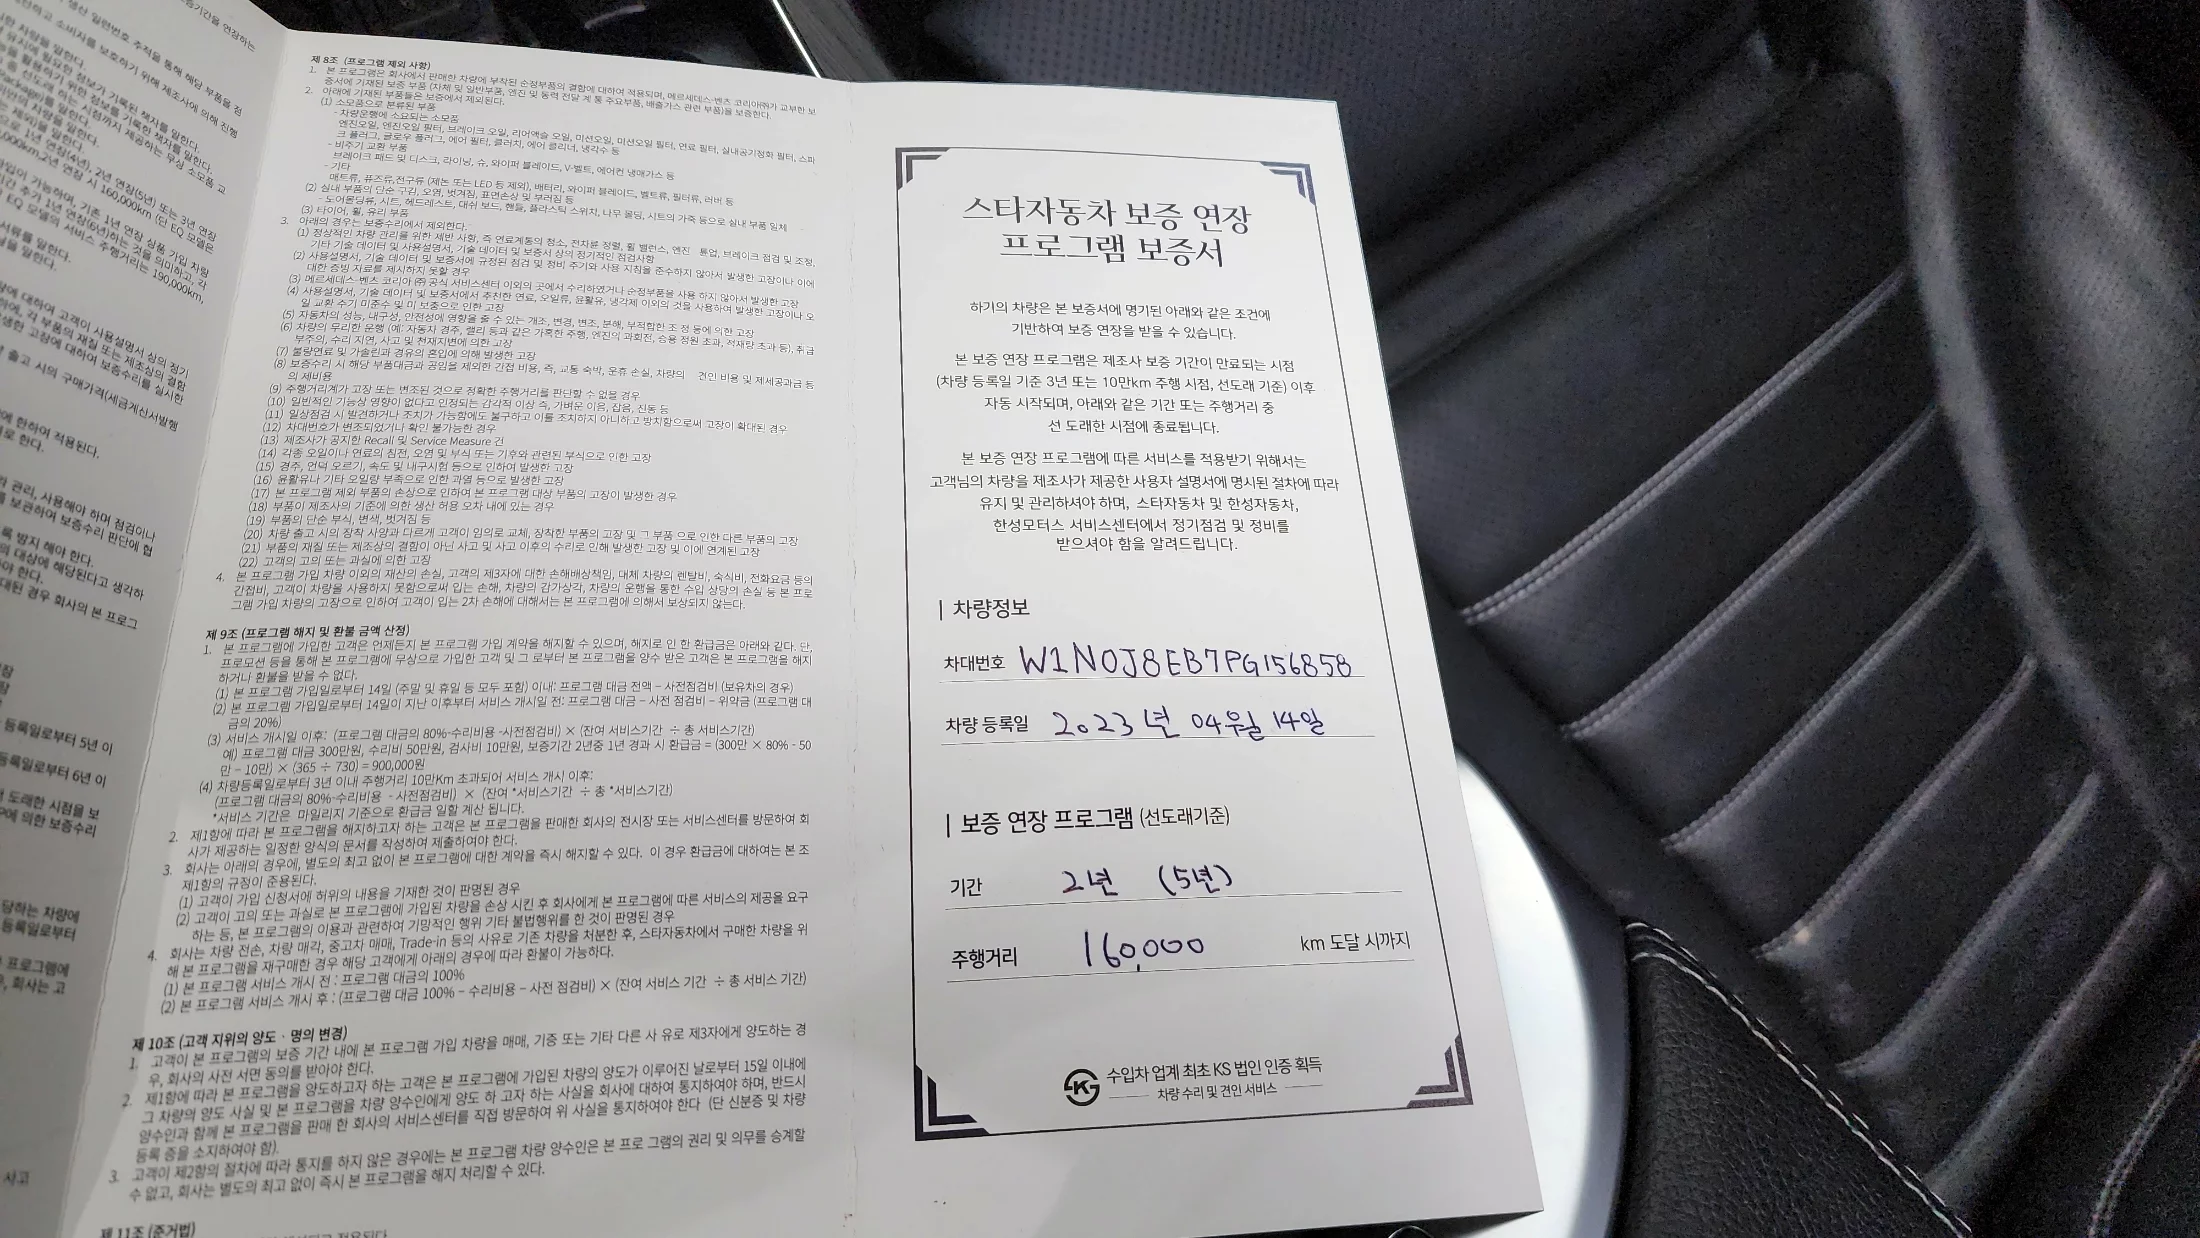 증기간을 연장하는
생산 일련번호 추적을 통해 해당 부품을 점
하고 소비자를 보호하기 위해 제조사에 의해 진행
차량을 말한다.
유지에 필요한 정보가 기록된 책자를 말한다.
를 활용하기 위한 정보를 기록한 책자를 말한다.
중 선도래 하는 시점까지 제공하는 무상 소모품 교
000km,2년 연장 시 160,000km (단 EQ 모델은
EQ 모델의 서비스 주행거리는 190,000km,
서류를 말한다.
을 말한다.
량에 대하여 고객이 사용설명서 상의 정기
하여, 각 부품의 재질 또는 제조상의 결함
발생한 고장에 대하여 보증수리를 실시한
출고 시의 구매가격(세금계산서발행
에 한하여 적용된다.
로 한다.
관리, 사용해야 하며 점검이나
를 보관하여 보증수리 판단에 협
록 방지 해야 한다.
의 대상에 해당된다고 생각하
야 한다.
대된 경우 회사의 본 프로그
등록일로부터 5년 이
등록일로부터 6년 이
도래한 시점을 보
에 의한 보증수리
당하는 차량에
등록일로부터
프로그램에
, 회사는 고
사고
제 8조 (프로그램 제외 사항)
1. 본 프로그램은 회사에서 판매한 차량에 부착된 순정부품의 결함에 대하여 적용되며, 메르세데스-벤츠 코리아㈜가 교부한 보
증서에 기재된 보증 부품 (차체 및 일반부품, 엔진 및 동력 전달 계 통 주요부품, 배출가스 관련 부품)을 보증한다.
2. 아래에 기재된 부품들은 보증에서 제외된다.
(1) 소모품으로 분류된 부품
- 차량운행에 소요되는 소모품
엔진오일, 엔진오일 필터, 브레이크 오일, 리어액슬 오일, 미션오일, 미션오일 필터, 연료 필터, 실내공기정화 필터, 스파
크 플러그, 글로우 플러그, 에어 필터, 클러치, 에어 클리너, 냉각수 등
- 비주기 교환 부품
브레이크 패드 및 디스크, 라이닝, 슈, 와이퍼 블레이드, V-벨트, 에어컨 냉매가스 등
- 기타
매트류, 퓨즈류,전구류 (제논 또는 LED 등 제외), 배터리, 와이퍼 블레이드, 벨트류, 필터류, 러버 등
(2) 실내 부품의 단순 구김, 오염, 벗겨짐, 표면손상 및 부러짐 등
- 도어몰딩류, 시트, 헤드레스트, 대쉬 보드, 핸들, 플라스틱 스위치, 나무 몰딩, 시트의 가죽 등으로 실내 부품 일체
(3) 타이어, 휠, 유리 부품
3. 아래의 경우는 보증수리에서 제외한다.
(1) 정상적인 차량 관리를 위한 제반 사항, 즉 연료계통의 청소, 전차륜 정렬, 휠 밸런스, 엔진 튠업, 브레이크 점검 및 조정,
기타 기술 데이터 및 사용설명서, 기술 데이터 및 보증서 상의 정기적인 점검사항
(2) 사용설명서, 기술 데이터 및 보증서에 규정된 점검 및 정비 주기와 사용 지침을 준수하지 않아서 발생한 고장이나 이에
대한 증빙 자료를 제시하지 못할 경우
(3) 메르세데스-벤츠 코리아 ㈜ 공식 서비스센터 이외의 곳에서 수리하였거나 순정부품을 사용 하지 않아서 발생한 고장
(4) 사용설명서, 기술 데이터 및 보증서에서 추천한 연료, 오일류, 윤활유, 냉각제 이외의 것을 사용하여 발생한 고장이나 오
일 교환 주기 미준수 및 미 보충으로 인한 고장
(5) 자동차의 성능, 내구성, 안전성에 영향을 줄 수 있는 개조, 변경, 변조, 분해, 부적합한 조 정 등에 의한 고장
(6) 차량의 무리한 운행 (예: 자동차 경주, 랠리 등과 같은 가혹한 주행, 엔진의 과회전, 승용 정원 초과, 적재량 초과 등), 취급
부주의, 수리 지연, 사고 및 천재지변에 의한 고장
(7) 불량연료 및 가솔린과 경유의 혼입에 의해 발생한 고장
(8) 보증수리 시 해당 부품대금과 공임을 제외한 간접 비용, 즉, 교통 숙박, 운휴 손실, 차량의 견인 비용 및 제세공과금 등
의 제비용
(9) 주행거리계가 고장 또는 변조된 것으로 정확한 주행거리를 판단할 수 없을 경우
(10) 일반적인 기능상 영향이 없다고 인정되는 감각적 이상 즉, 가벼운 이음, 잡음, 진동 등
(11) 일상점검 시 발견하거나 조치가 가능함에도 불구하고 이를 조치하지 아니하고 방치함으로써 고장이 확대된 경우
(12) 차대번호가 변조되었거나 확인 불가능한 경우
(13) 제조사가 공지한 Recall 및 Service Measure 건
(14) 각종 오일이나 연료의 침전, 오염 및 부식 또는 기후와 관련된 부식으로 인한 고장
(15) 경주, 언덕 오르기, 속도 및 내구시험 등으로 인하여 발생한 고장
(16) 윤활유나 기타 오일량 부족으로 인한 과열 등으로 발생한 고장
(17) 본 프로그램 제외 부품의 손상으로 인하여 본 프로그램 대상 부품의 고장이 발생한 경우
(18) 부품이 제조사의 기준에 의한 생산 허용 오차 내에 있는 경우
(19) 부품의 단순 부식, 변색, 벗겨짐 등
(20) 차량 출고 시의 장착 사양과 다르게 고객이 임의로 교체, 장착한 부품의 고장 및 그 부품 으로 인한 다른 부품의 고장
(21) 부품의 재질 또는 제조상의 결함이 아닌 사고 및 사고 이후의 수리로 인해 발생한 고장 및 이에 연계된 고장
(22) 고객의 고의 또는 과실에 의한 고장
4. 본 프로그램 가입 차량 이외의 재산의 손실, 고객의 제3자에 대한 손해배상책임, 대체 차량의 렌탈비, 숙식비, 전화요금 등의
간접비, 고객이 차량을 사용하지 못함으로써 입는 손해, 차량의 감가상각, 차량의 운행을 통한 수입 상당의 손실 등 본 프로
그램 가입 차량의 고장으로 인하여 고객이 입는 2차 손해에 대해서는 본 프로그램에 의해서 보상되지 않는다.
제 9조 (프로그램 해지 및 환불 금액 산정)
1. 본 프로그램에 가입한 고객은 언제든지 본 프로그램 가입 계약을 해지할 수 있으며, 해지로 인 한 환급금은 아래와 같다. 단,
프로모션 등을 통해 본 프로그램에 무상으로 가입한 고객 및 그 로부터 본 프로그램을 양수 받은 고객은 본 프로그램을 해지
하거나 환불을 받을 수 없다.
(1) 본 프로그램 가입일로부터 14일 (주말 및 휴일 등 모두 포함) 이내: 프로그램 대금 전액 – 사전점검비 (보유차의 경우)
(2) 본 프로그램 가입일로부터 14일이 지난 이후부터 서비스 개시일 전: 프로그램 대금 – 사전 점검비 – 위약금 (프로그램 대
금의 20%)
(3) 서비스 개시일 이후: (프로그램 대금의 80%-수리비용 -사전점검비) × (잔여 서비스기간 ÷ 총 서비스기간)
예) 프로그램 대금 300만원, 수리비 50만원, 검사비 10만원, 보증기간 2년중 1년 경과 시 환급금 = (300만 × 80% - 50
만 – 10만) × (365 ÷ 730) = 900,000원
(4) 차량등록일로부터 3년 이내 주행거리 10만Km 초과되어 서비스 개시 이후:
(프로그램 대금의 80%-수리비용 - 사전점검비) × (잔여 *서비스기간 ÷ 총 *서비스기간)
*서비스 기간은 마일리지 기준으로 환급금 일할 계산 됩니다.
2. 제1항에 따라 본 프로그램을 해지하고자 하는 고객은 본 프로그램을 판매한 회사의 전시장 또는 서비스센터를 방문하여 회
사가 제공하는 일정한 양식의 문서를 작성하여 제출하여야 한다.
3. 회사는 아래의 경우에, 별도의 최고 없이 본 프로그램에 대한 계약을 즉시 해지할 수 있다. 이 경우 환급금에 대하여는 본 조
제1항의 규정이 준용된다.
(1) 고객이 가입 신청서에 허위의 내용을 기재한 것이 판명된 경우
(2) 고객이 고의 또는 과실로 본 프로그램에 가입된 차량을 손상 시킨 후 회사에게 본 프로그램에 따른 서비스의 제공을 요구
하는 등, 본 프로그램의 이용과 관련하여 기망적인 행위 기타 불법행위를 한 것이 판명된 경우
4. 회사는 차량 전손, 차량 매각, 중고차 매매, Trade-in 등의 사유로 기존 차량을 처분한 후, 스타자동차에서 구매한 차량을 위
해 본 프로그램을 재구매한 경우 해당 고객에게 아래의 경우에 따라 환불이 가능하다.
(1) 본 프로그램 서비스 개시 전 : 프로그램 대금의 100%
(2) 본 프로그램 서비스 개시 후 : (프로그램 대금 100% – 수리비용 – 사전 점검비) × (잔여 서비스 기간 ÷ 총 서비스 기간)
제 10조 (고객 지위의 양도ㆍ명의 변경)
1. 고객이 본 프로그램의 보증 기간 내에 본 프로그램 가입 차량을 매매, 기증 또는 기타 다른 사 유로 제3자에게 양도하는 경
우, 회사의 사전 서면 동의를 받아야 한다.
2. 제1항에 따라 본 프로그램을 양도하고자 하는 고객은 본 프로그램에 가입된 차량의 양도가 이루어진 날로부터 15일 이내에
그 차량의 양도 사실 및 본 프로그램을 차량 양수인에게 양도 하 고자 하는 사실을 회사에 대하여 통지하여야 하며, 반드시
양수인과 함께 본 프로그램을 판매 한 회사의 서비스센터를 직접 방문하여 위 사실을 통지하여야 한다 (단 신분증 및 차량
등록 증을 소지하여야 함).
3. 고객이 제2항의 절차에 따라 통지를 하지 않은 경우에는 본 프로그램 차량 양수인은 본 프로 그램의 권리 및 의무를 승계할
수 없고, 회사는 별도의 최고 없이 즉시 본 프로그램을 해지 처리할 수 있다.
제 11조 (준거법)
스타자동차 보증 연장
프로그램 보증서
하기의 차량은 본 보증서에 명기된 아래와 같은 조건에
기반하여 보증 연장을 받을 수 있습니다.
본 보증 연장 프로그램은 제조사 보증 기간이 만료되는 시점
(차량 등록일 기준 3년 또는 10만km 주행 시점, 선도래 기준) 이후
자동 시작되며, 아래와 같은 기간 또는 주행거리 중
선 도래한 시점에 종료됩니다.
본 보증 연장 프로그램에 따른 서비스를 적용받기 위해서는
고객님의 차량을 제조사가 제공한 사용자 설명서에 명시된 절차에 따라
유지 및 관리하셔야 하며, 스타자동차 및 한성자동차,
한성모터스 서비스센터에서 정기점검 및 정비를
받으셔야 함을 알려드립니다.
| 차량정보
차대번호 W1N0J8EB7PG156858
차량 등록일 2023년 04월 14일
| 보증 연장 프로그램 (선도래기준)
기간 2년 (5년)
주행거리 160,000 km 도달 시까지
수입차 업계 최초 KS 법인 인증 획득
차량 수리 및 견인 서비스